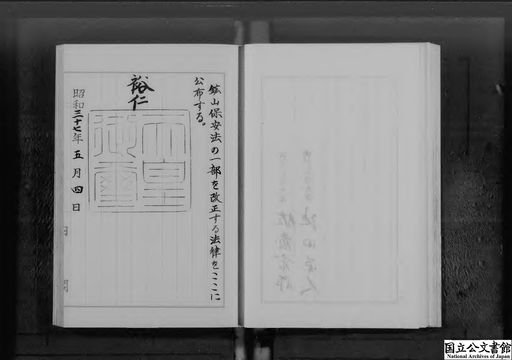 鉱山保安法の一部を改正する法律をここに
公布する。
裕仁
天皇
御璽
昭和三十七年五月四日
国立公文書館
National Archives of Japan